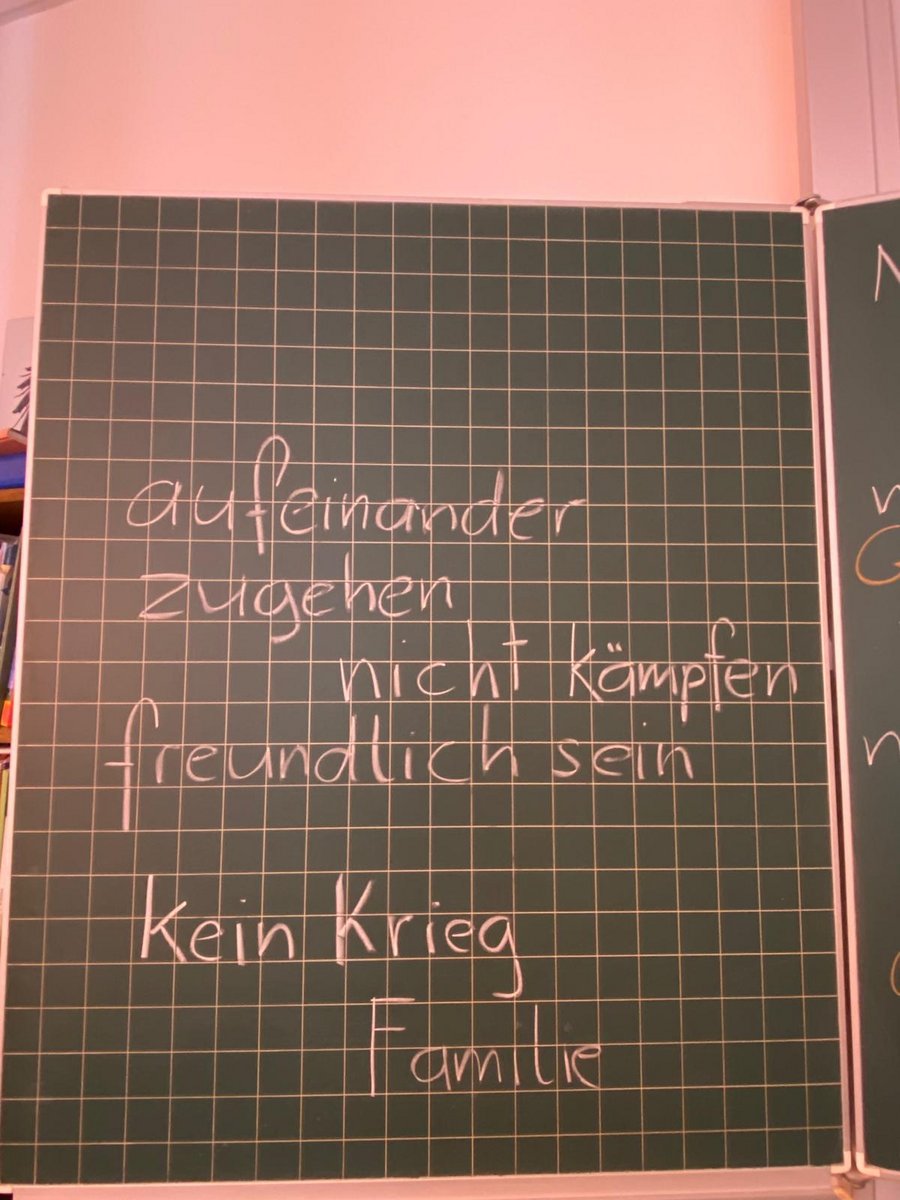 aufeinander
zugehen
nicht kämpfen
freundlich sein
kein Krieg
Familie